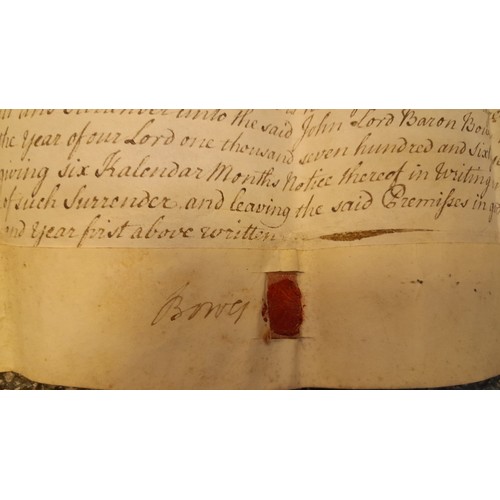 and Surrender unto the said John Lord Baron Bow
the Year of our Lord one thousand seven hundred and Sixt
giving six Kalendar Months Notice thereof in Writing
of such Surrender and leaving the said Premisses in
and Year first above written
Bowes